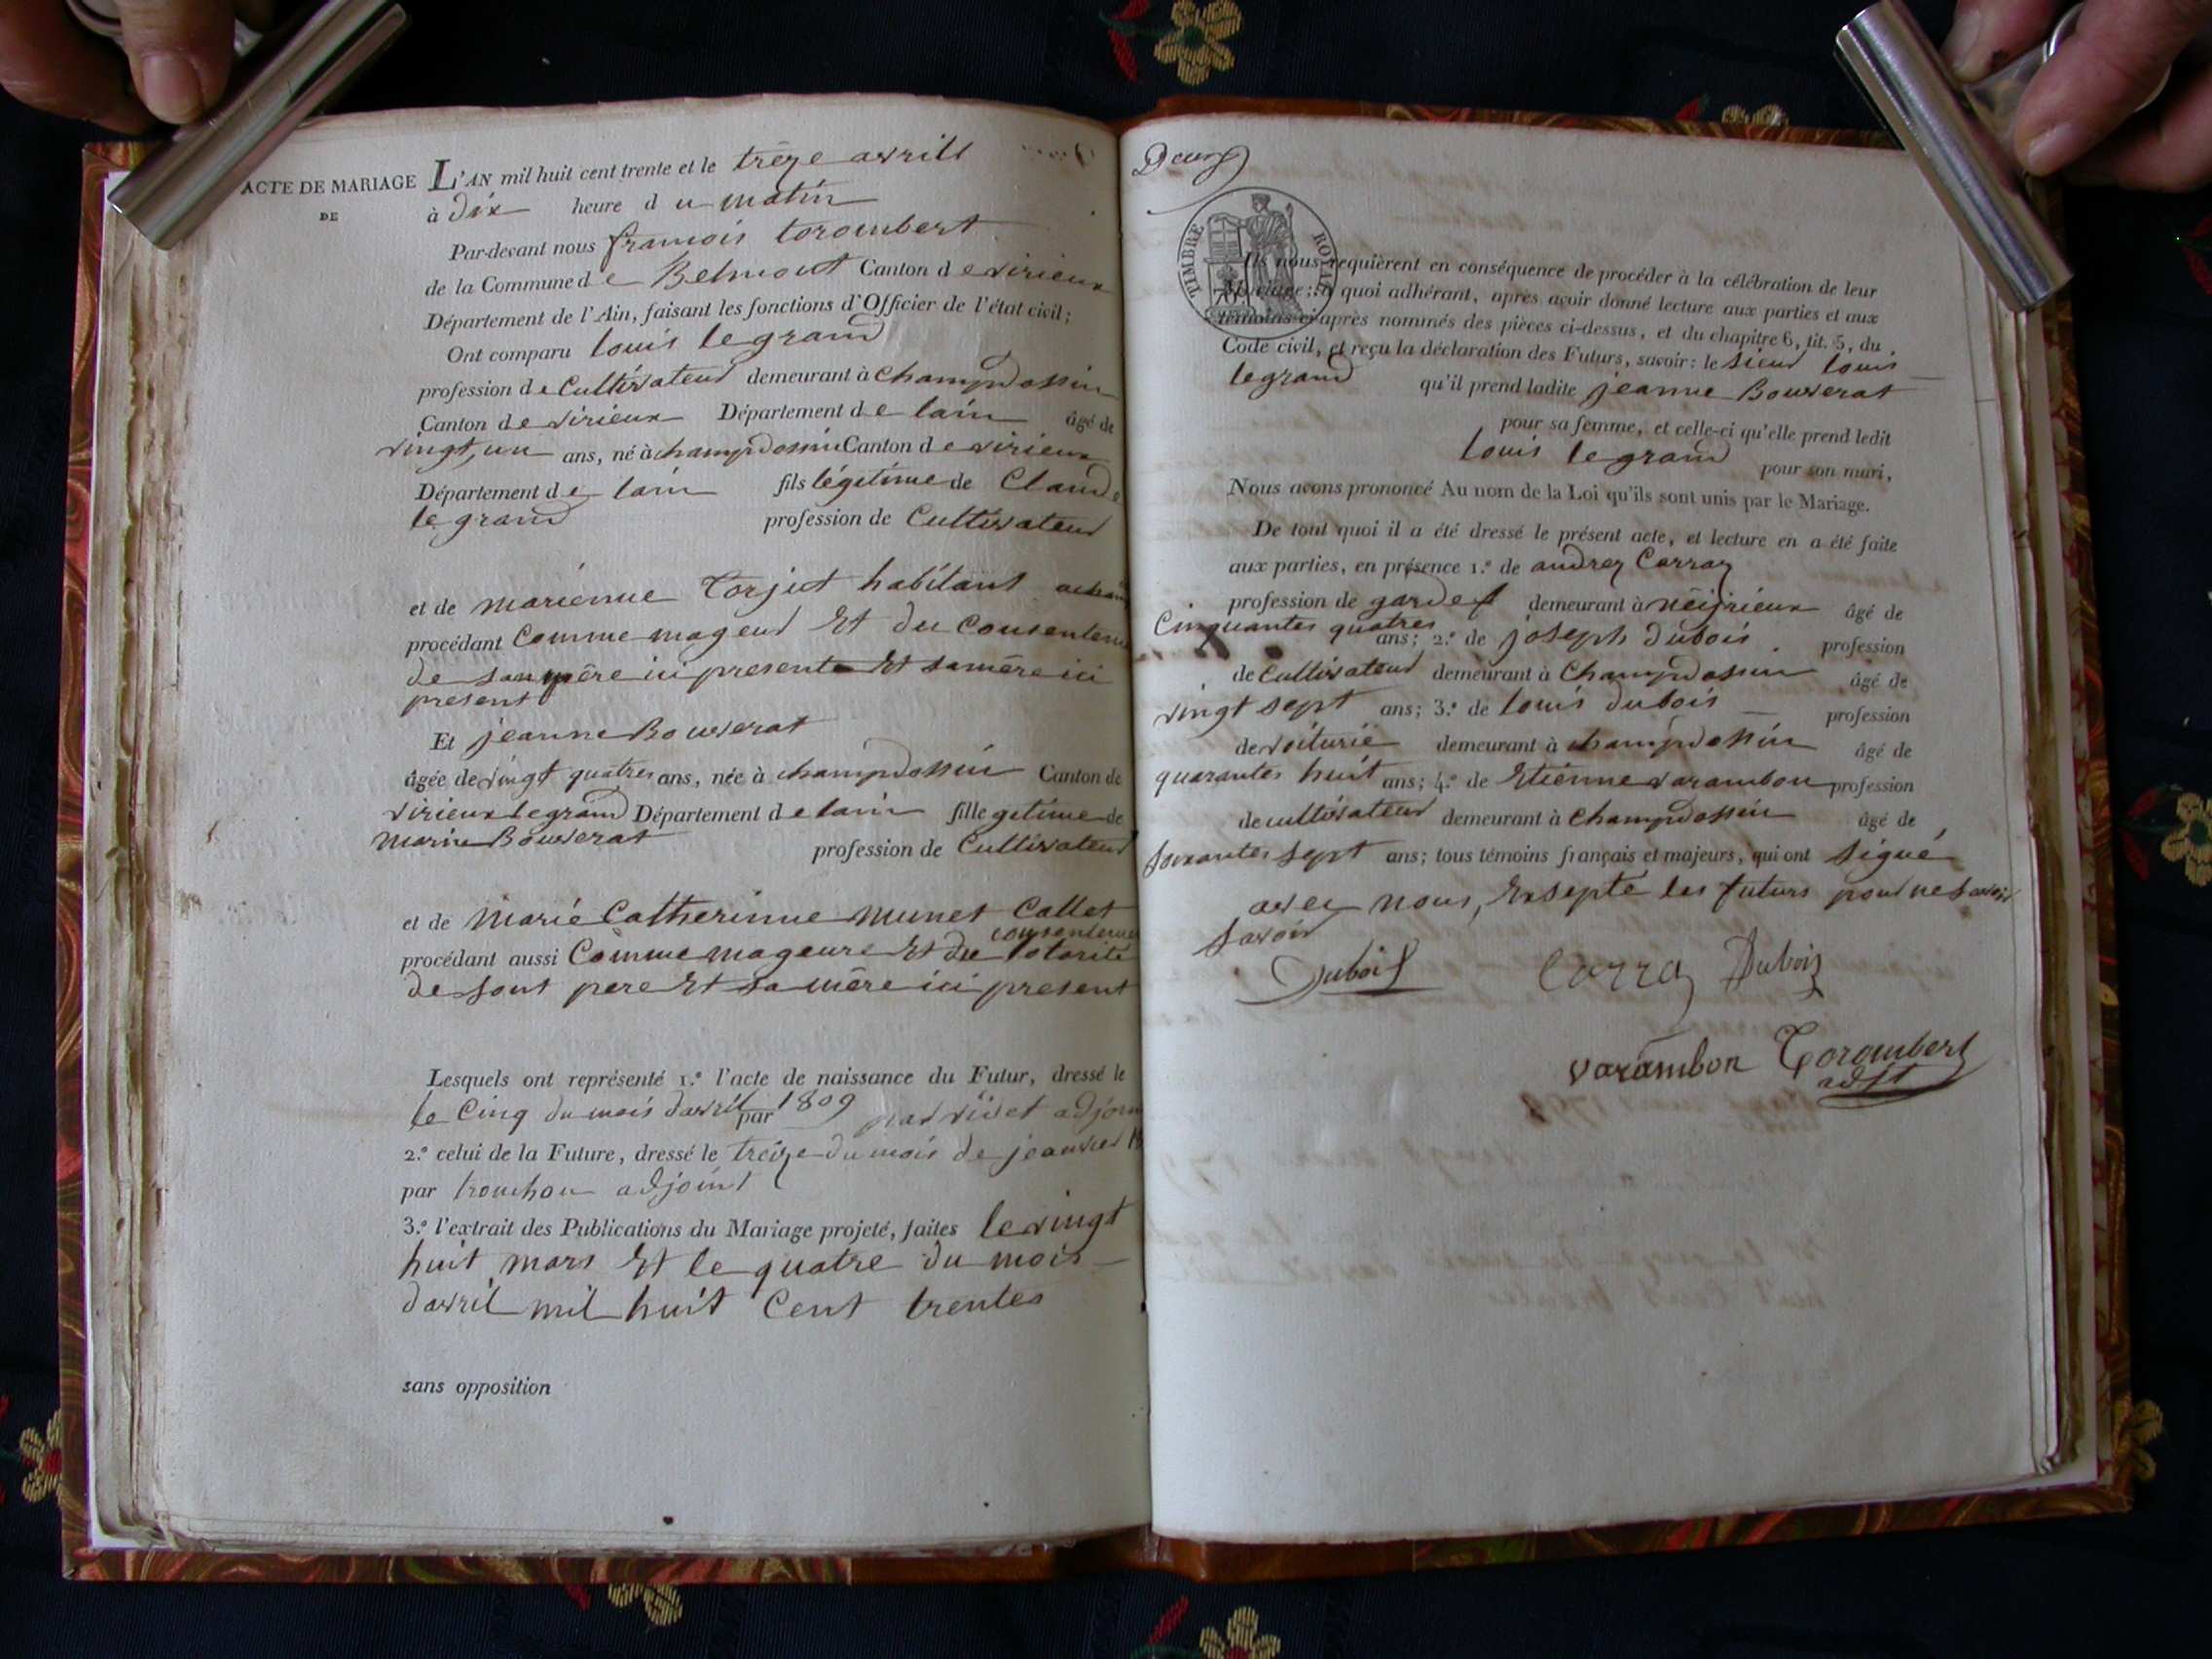 ACTE DE MARIAGE
DE
L'AN mil huit cent trente et le trêze avrill
à dix heure du matin
Par-devant nous francois torombert
de la Commune de Belmont Canton de virieux
Département de l'Ain, faisant les fonctions d'Officier de l'état civil;
Ont comparu louis legrand
profession de Cultivateur demeurant à champdossin
Canton de virieux Département de lain âgé de
vingt, un ans, né à champdossin Canton de virieux
Département de lain fils légitime de Claude
legrand profession de Cultivateur
et de marienne torjut habitant
procédant Comme mageur Et du Consenteme
de son père ici presente Et samère ici
present
Et jeanne Bouverat
âgée de vingt quatres ans, née à champdossin Canton de
virieux legrand Département de lain fille gitime de
marin Bouverat profession de Cultivateur
et de marie Catherinne munet Collet
consenteme
procédant aussi Comme mageure Et du totorité
de sont pere Et sa mère ici present
Lesquels ont représenté 1.º l'acte de naissance du Futur, dressé le
le Cinq du mois davril par 1809 par rivet adjoin
2.º celui de la Future, dressé le treize du mois de jeanvier
par trouchon adjoint
3.º l'extrait des Publications du Mariage projeté, faites le vingt
huit mars Et le quatre du mois
davril mil huit Cent trentes
sans opposition
Deux
TIMBRE ROYAL
Ils nous requièrent en conséquence de procéder à la célébration de leur
Mariage; à quoi adhérant, après avoir donné lecture aux parties et aux
témoins ci-après nommés des pièces ci-dessus, et du chapitre 6, tit. 5, du
Code civil, et reçu la déclaration des Futurs, savoir: le sieur louis
legrand qu'il prend ladite jeanne Bouverat
pour sa femme, et celle-ci qu'elle prend ledit
louis legrand pour son mari,
Nous avons prononcé Au nom de la Loi qu'ils sont unis par le Mariage.
De tout quoi il a été dressé le présent acte, et lecture en a été faite
aux parties, en présence 1.º de andrez Carraz
profession de gardes demeurant à nêijrieux âgé de
Cinquantes quatres ans; 2.º de joseph dubois profession
de Cultivateur demeurant à Champdossin âgé de
vingt sept ans; 3.º de louis dubois profession
de voiturie demeurant à champdossin âgé de
quarantes huit ans; 4.º de Etiènne varambon profession
de cultivateur demeurant à Champdossin âgé de
soixantes sept ans; tous témoins français et majeurs, qui ont signé
avec nous, Exsepté les futurs pour ne savoir
savoir
Dubois Carraz Dubois
varambon Torombert
adjt